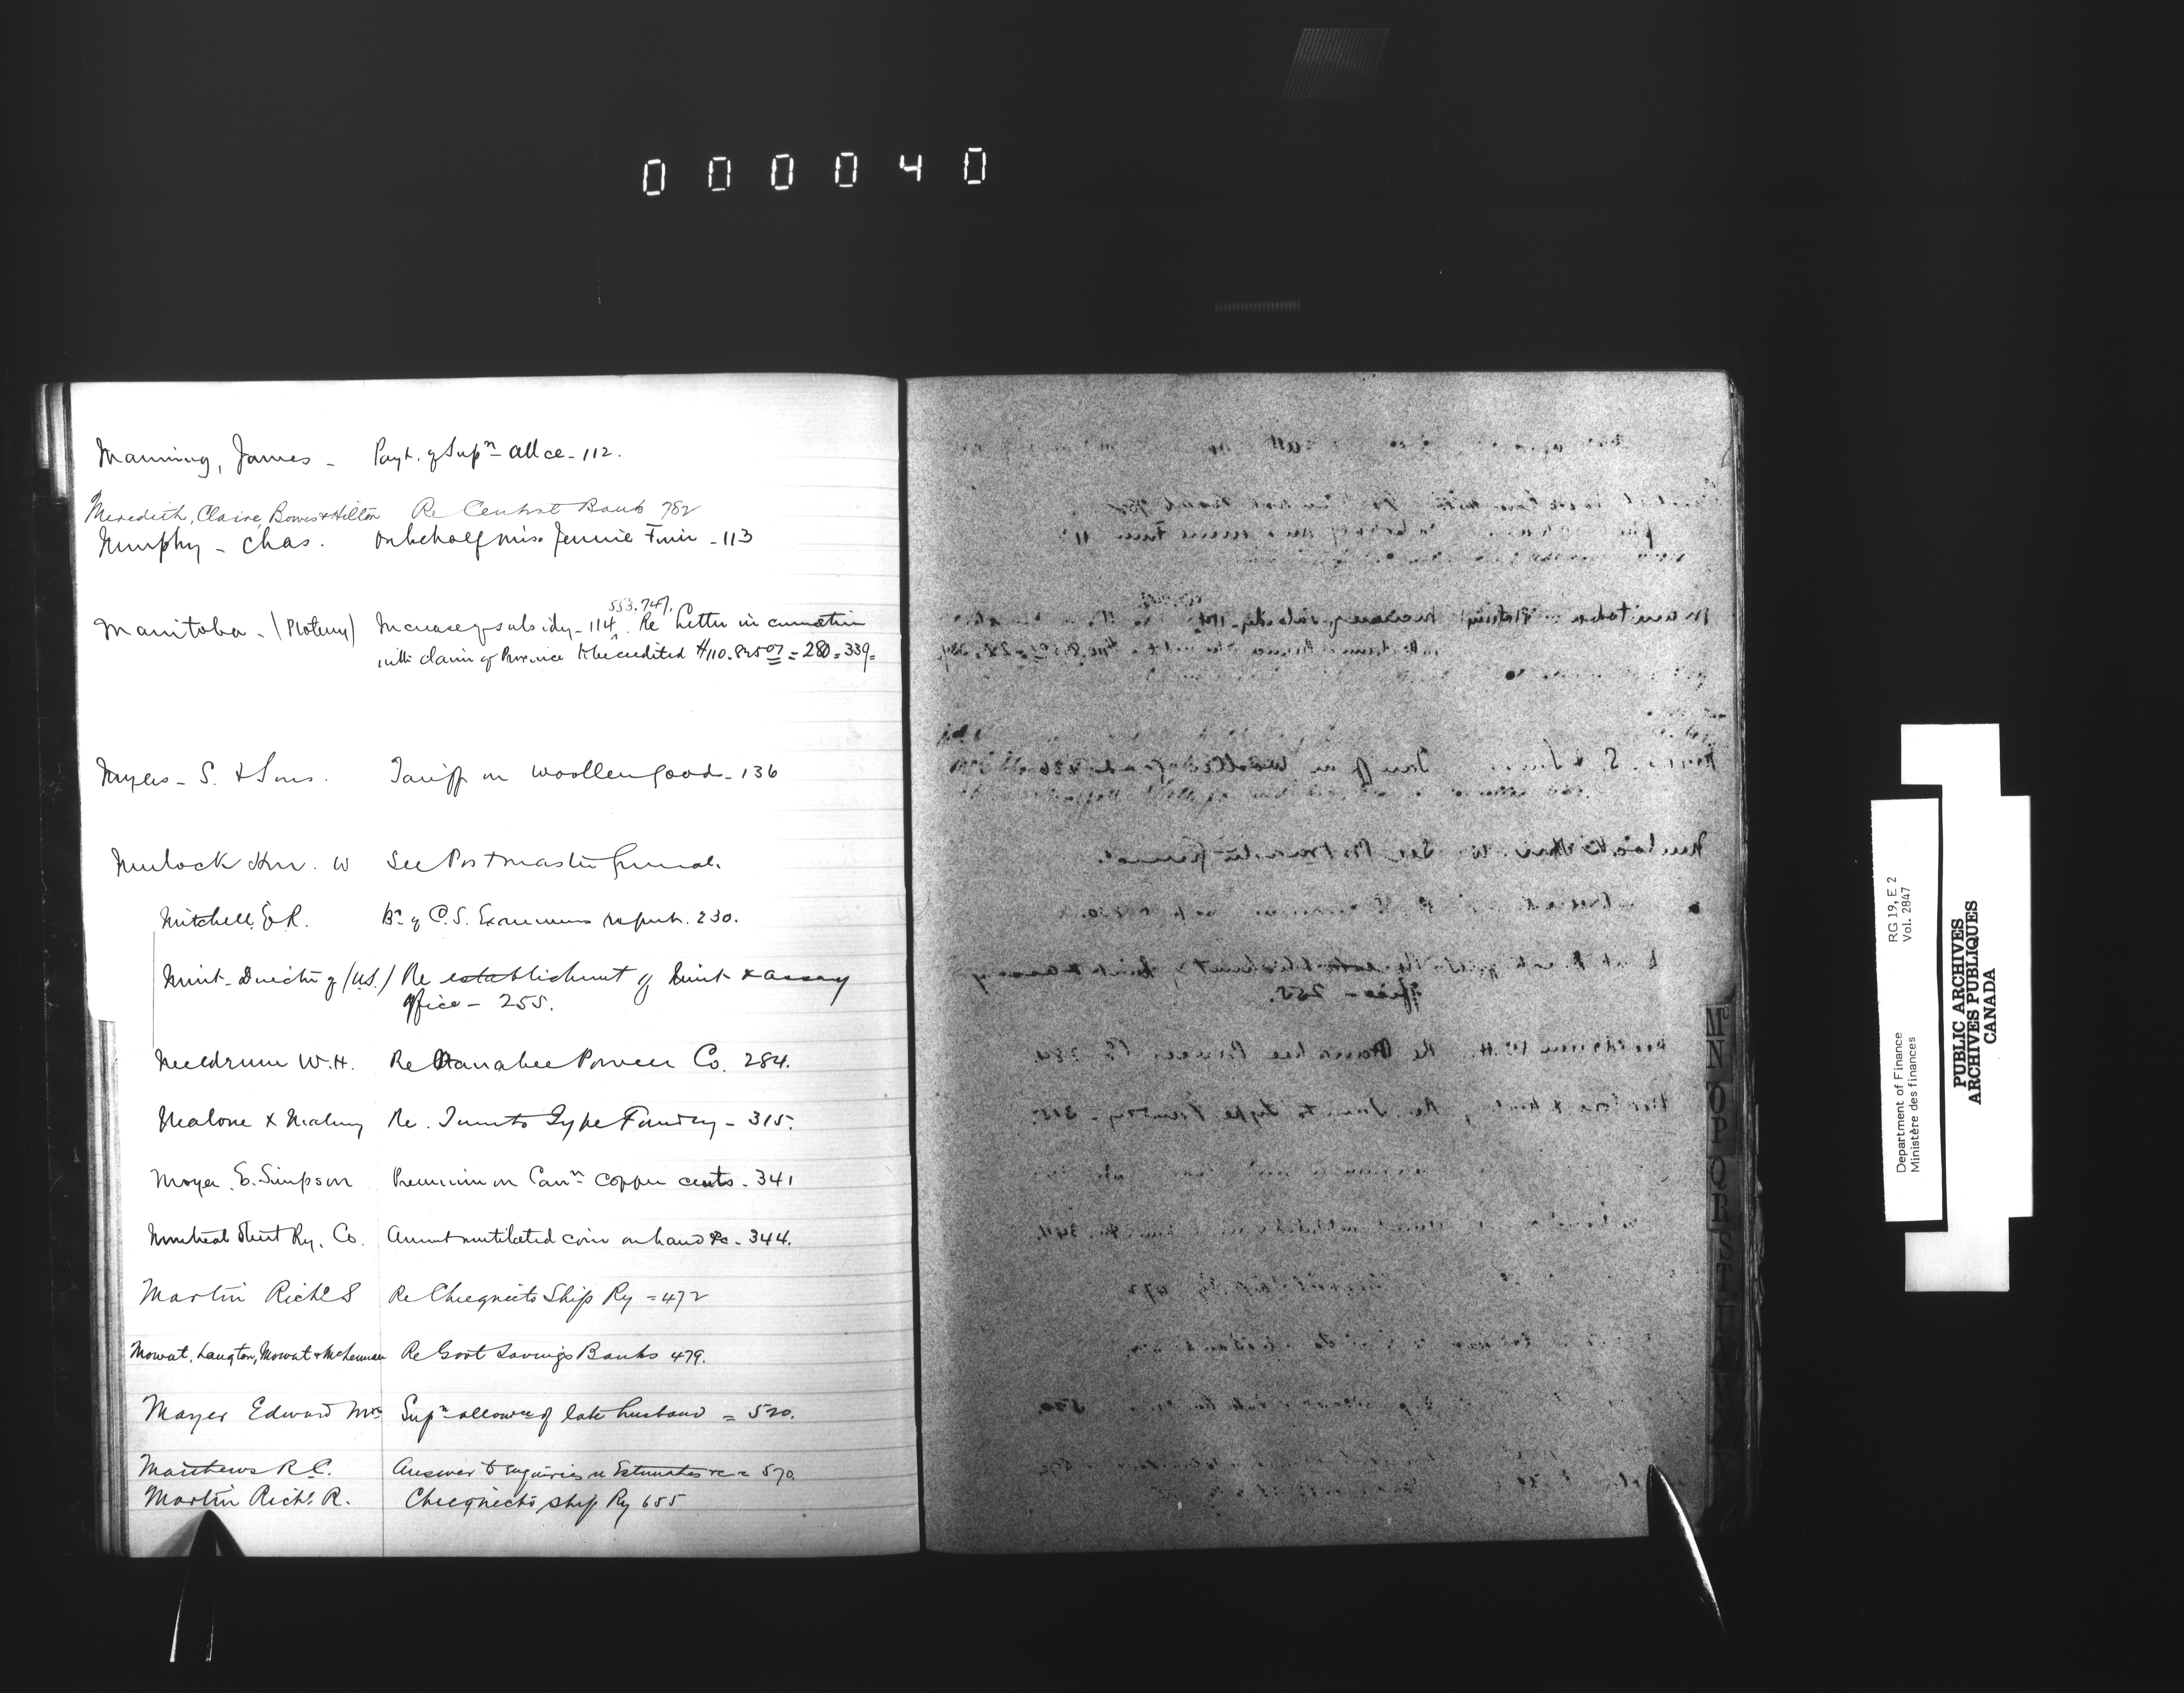 000040
Manning, James - Payt. of Supn allce - 112.
Meredith, Claire, Bowes & Hilton Re Central Bank 782
Murphy - Chas. On behalf Miss Jennie - 113
553.747.
Manitoba - Increase of subsidy - 114. Re Letter in
with claim of Province to be credited $110.825 07 = 280 = 339 =
Myers - S. & Sons. Tariff on Woollen goods - 136
Mulock Hon. W See Postmaster General.
Mitchell, E. R. Bd of C. S. Examiners report. 230.
Mint - Director of (U.S.) Re establishment of Mint & assay
office - 255.
Meldrum W. H. Re Otanabee Power Co. 284.
Malone & Re. Toronto Type Foundry - 315.
Moyer E. Simpson Premium on Cann copper cents - 341
Montreal Street Ry. Co. Amount mutilated coin on hand &c - 344.
Martin Richd S Re Chiegnecto Ship Ry = 472
Mowat, Langton, Mowat & McLennan Re Govt Savings Banks 479.
Mayer Edward Mrs Supn allowce of late husband = 520.
Matthews R. C. Answer to enquiries re Estimates &c = 570.
Martin Richd R. Chiegnecto Ship Ry 655
Mc
N
O
P
Q
R
S
T
RG 19, E 2
Vol. 2847
Department of Finance
Ministère des finances
PUBLIC ARCHIVES
ARCHIVES PUBLIQUES
CANADA